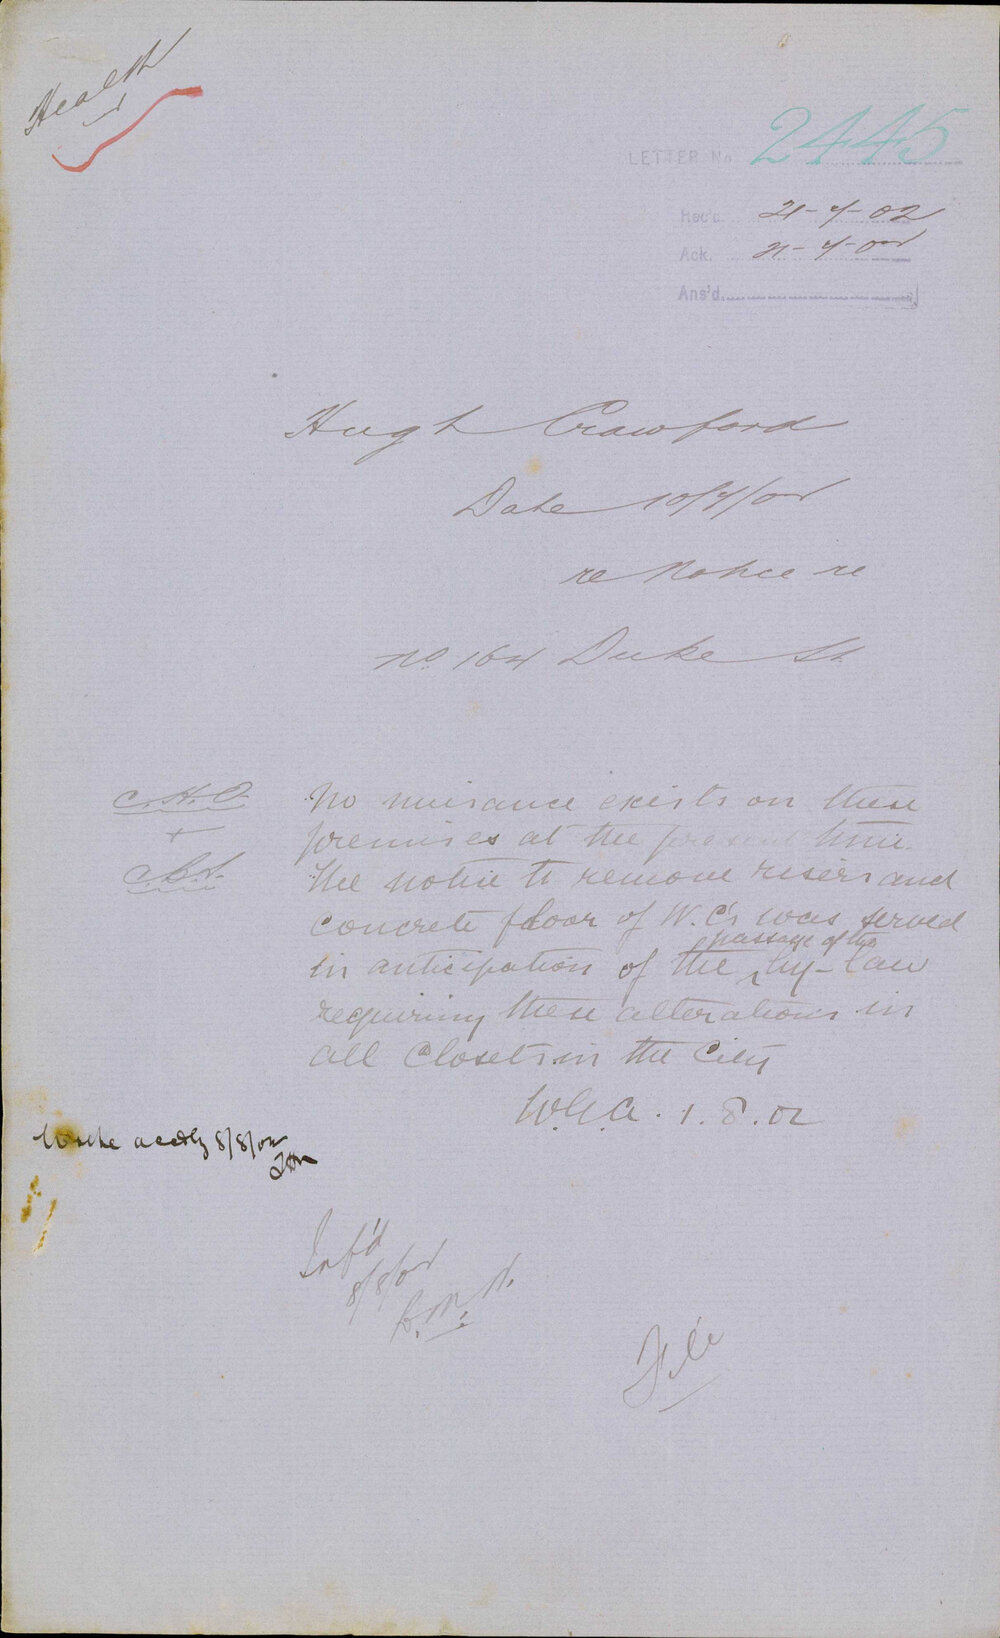 Health
LETTER No 2445
Rec'd. 21-7-02
Ack. 21-7-02
Ans'd.
Hugh Crawford
Date 10/7/02
re Notice re
No 164 Duke St.
C.H.O. No nuisance exists on these
+ premises at the present time.
C.C.S. The notice to remove risers and
concrete floor of W.C's was served
passage of the
in anticipation of the by-law
requiring these alterations in
all Closets in the City
W.G.A. 1.8.02
Write accdly 8/8/02
Inf'd
8/8/02
B.M.H.
File